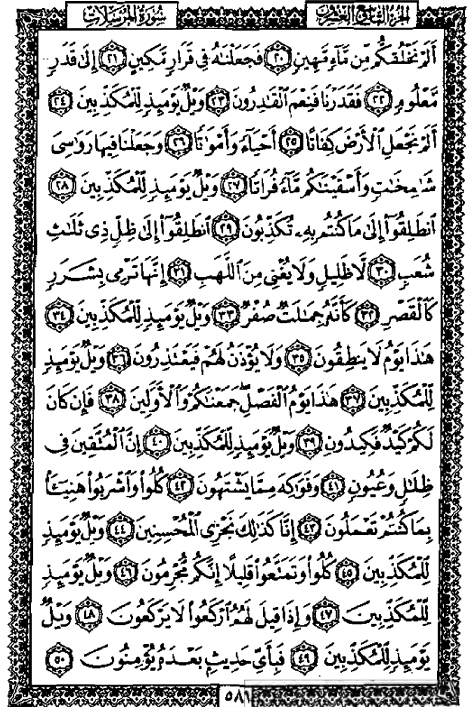 سُورَةُ المُرْسَلَاتِ الجُزْءُ التَّاسِعُ وَالعِشْرُونَ
أَلَمْ نَخْلُقكُّم مِّن مَّآءٍ مَّهِينٍ ٢٠ فَجَعَلْنَٰهُ فِى قَرَارٍ مَّكِينٍ ٢١ إِلَىٰ قَدَرٍ
مَّعْلُومٍ ٢٢ فَقَدَرْنَا فَنِعْمَ ٱلْقَٰدِرُونَ ٢٣ وَيْلٌ يَوْمَئِذٍ لِّلْمُكَذِّبِينَ ٢٤
أَلَمْ نَجْعَلِ ٱلْأَرْضَ كِفَاتًا ٢٥ أَحْيَآءً وَأَمْوَٰتًا ٢٦ وَجَعَلْنَا فِيهَا رَوَٰسِىَ
شَٰمِخَٰتٍ وَأَسْقَيْنَٰكُم مَّآءً فُرَاتًا ٢٧ وَيْلٌ يَوْمَئِذٍ لِّلْمُكَذِّبِينَ ٢٨
ٱنطَلِقُوٓا۟ إِلَىٰ مَا كُنتُم بِهِۦ تُكَذِّبُونَ ٢٩ ٱنطَلِقُوٓا۟ إِلَىٰ ظِلٍّ ذِى ثَلَٰثِ
شُعَبٍ ٣٠ لَّا ظَلِيلٍ وَلَا يُغْنِى مِنَ ٱللَّهَبِ ٣١ إِنَّهَا تَرْمِى بِشَرَرٍ
كَٱلْقَصْرِ ٣٢ كَأَنَّهُۥ جِمَٰلَتٌ صُفْرٌ ٣٣ وَيْلٌ يَوْمَئِذٍ لِّلْمُكَذِّبِينَ ٣٤
هَٰذَا يَوْمُ لَا يَنطِقُونَ ٣٥ وَلَا يُؤْذَنُ لَهُمْ فَيَعْتَذِرُونَ ٣٦ وَيْلٌ يَوْمَئِذٍ
لِّلْمُكَذِّبِينَ ٣٧ هَٰذَا يَوْمُ ٱلْفَصْلِ جَمَعْنَٰكُمْ وَٱلْأَوَّلِينَ ٣٨ فَإِن كَانَ
لَكُمْ كَيْدٌ فَكِيدُونِ ٣٩ وَيْلٌ يَوْمَئِذٍ لِّلْمُكَذِّبِينَ ٤٠ إِنَّ ٱلْمُتَّقِينَ فِى
ظِلَٰلٍ وَعُيُونٍ ٤١ وَفَوَٰكِهَ مِمَّا يَشْتَهُونَ ٤٢ كُلُوا۟ وَٱشْرَبُوا۟ هَنِيٓـًٔۢا
بِمَا كُنتُمْ تَعْمَلُونَ ٤٣ إِنَّا كَذَٰلِكَ نَجْزِى ٱلْمُحْسِنِينَ ٤٤ وَيْلٌ يَوْمَئِذٍ
لِّلْمُكَذِّبِينَ ٤٥ كُلُوا۟ وَتَمَتَّعُوا۟ قَلِيلًا إِنَّكُم مُّجْرِمُونَ ٤٦ وَيْلٌ يَوْمَئِذٍ
لِّلْمُكَذِّبِينَ ٤٧ وَإِذَا قِيلَ لَهُمُ ٱرْكَعُوا۟ لَا يَرْكَعُونَ ٤٨ وَيْلٌ
يَوْمَئِذٍ لِّلْمُكَذِّبِينَ ٤٩ فَبِأَىِّ حَدِيثٍۭ بَعْدَهُۥ يُؤْمِنُونَ ٥٠
٥٨١